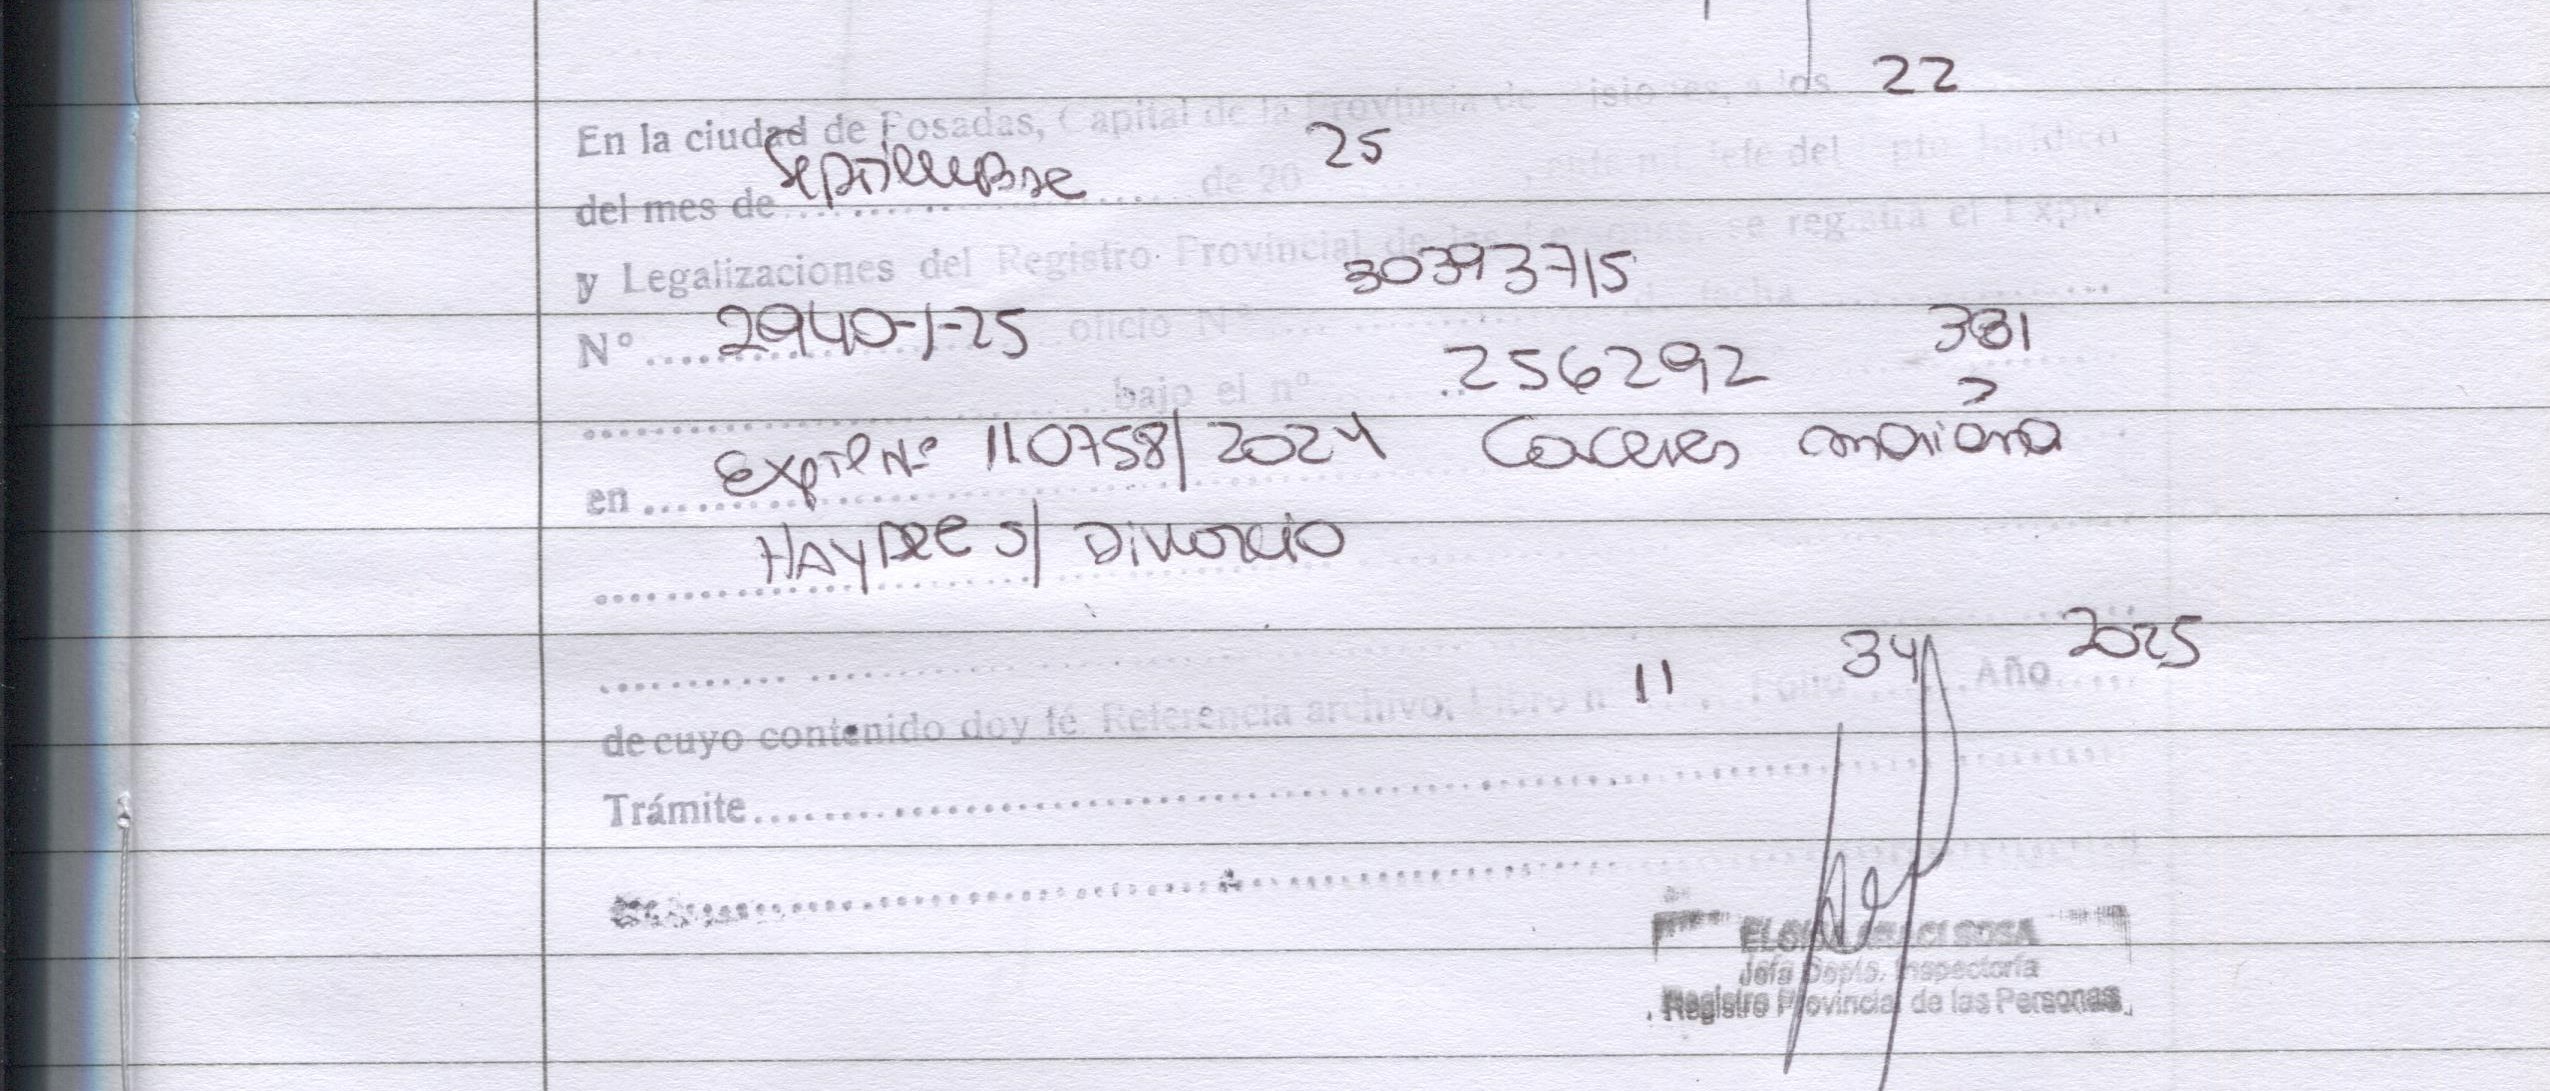 22
En la ciudad de Posadas, Capital de la Provincia de Misiones, a los
Septiembre 25
del mes de .......... de 20 ...... Jefe del Dpto Jurídico
y Legalizaciones del Registro Provincial de las Personas, se registra el Expte
30393715
N° ..... 2940-1-25 oficio N° ........ de fecha ........
bajo el n° ..... 256292 381
en ..... Expte N° 110758/2024 Caceres Mariana
Haydee s/ Divorcio
11 34 2025
de cuyo contenido doy fé Referencia archivo, Libro n ..... Folio ..... Año .....
Trámite ..........
SOSA
Jefa Depto. Inspectoría
Registro Provincial de las Personas